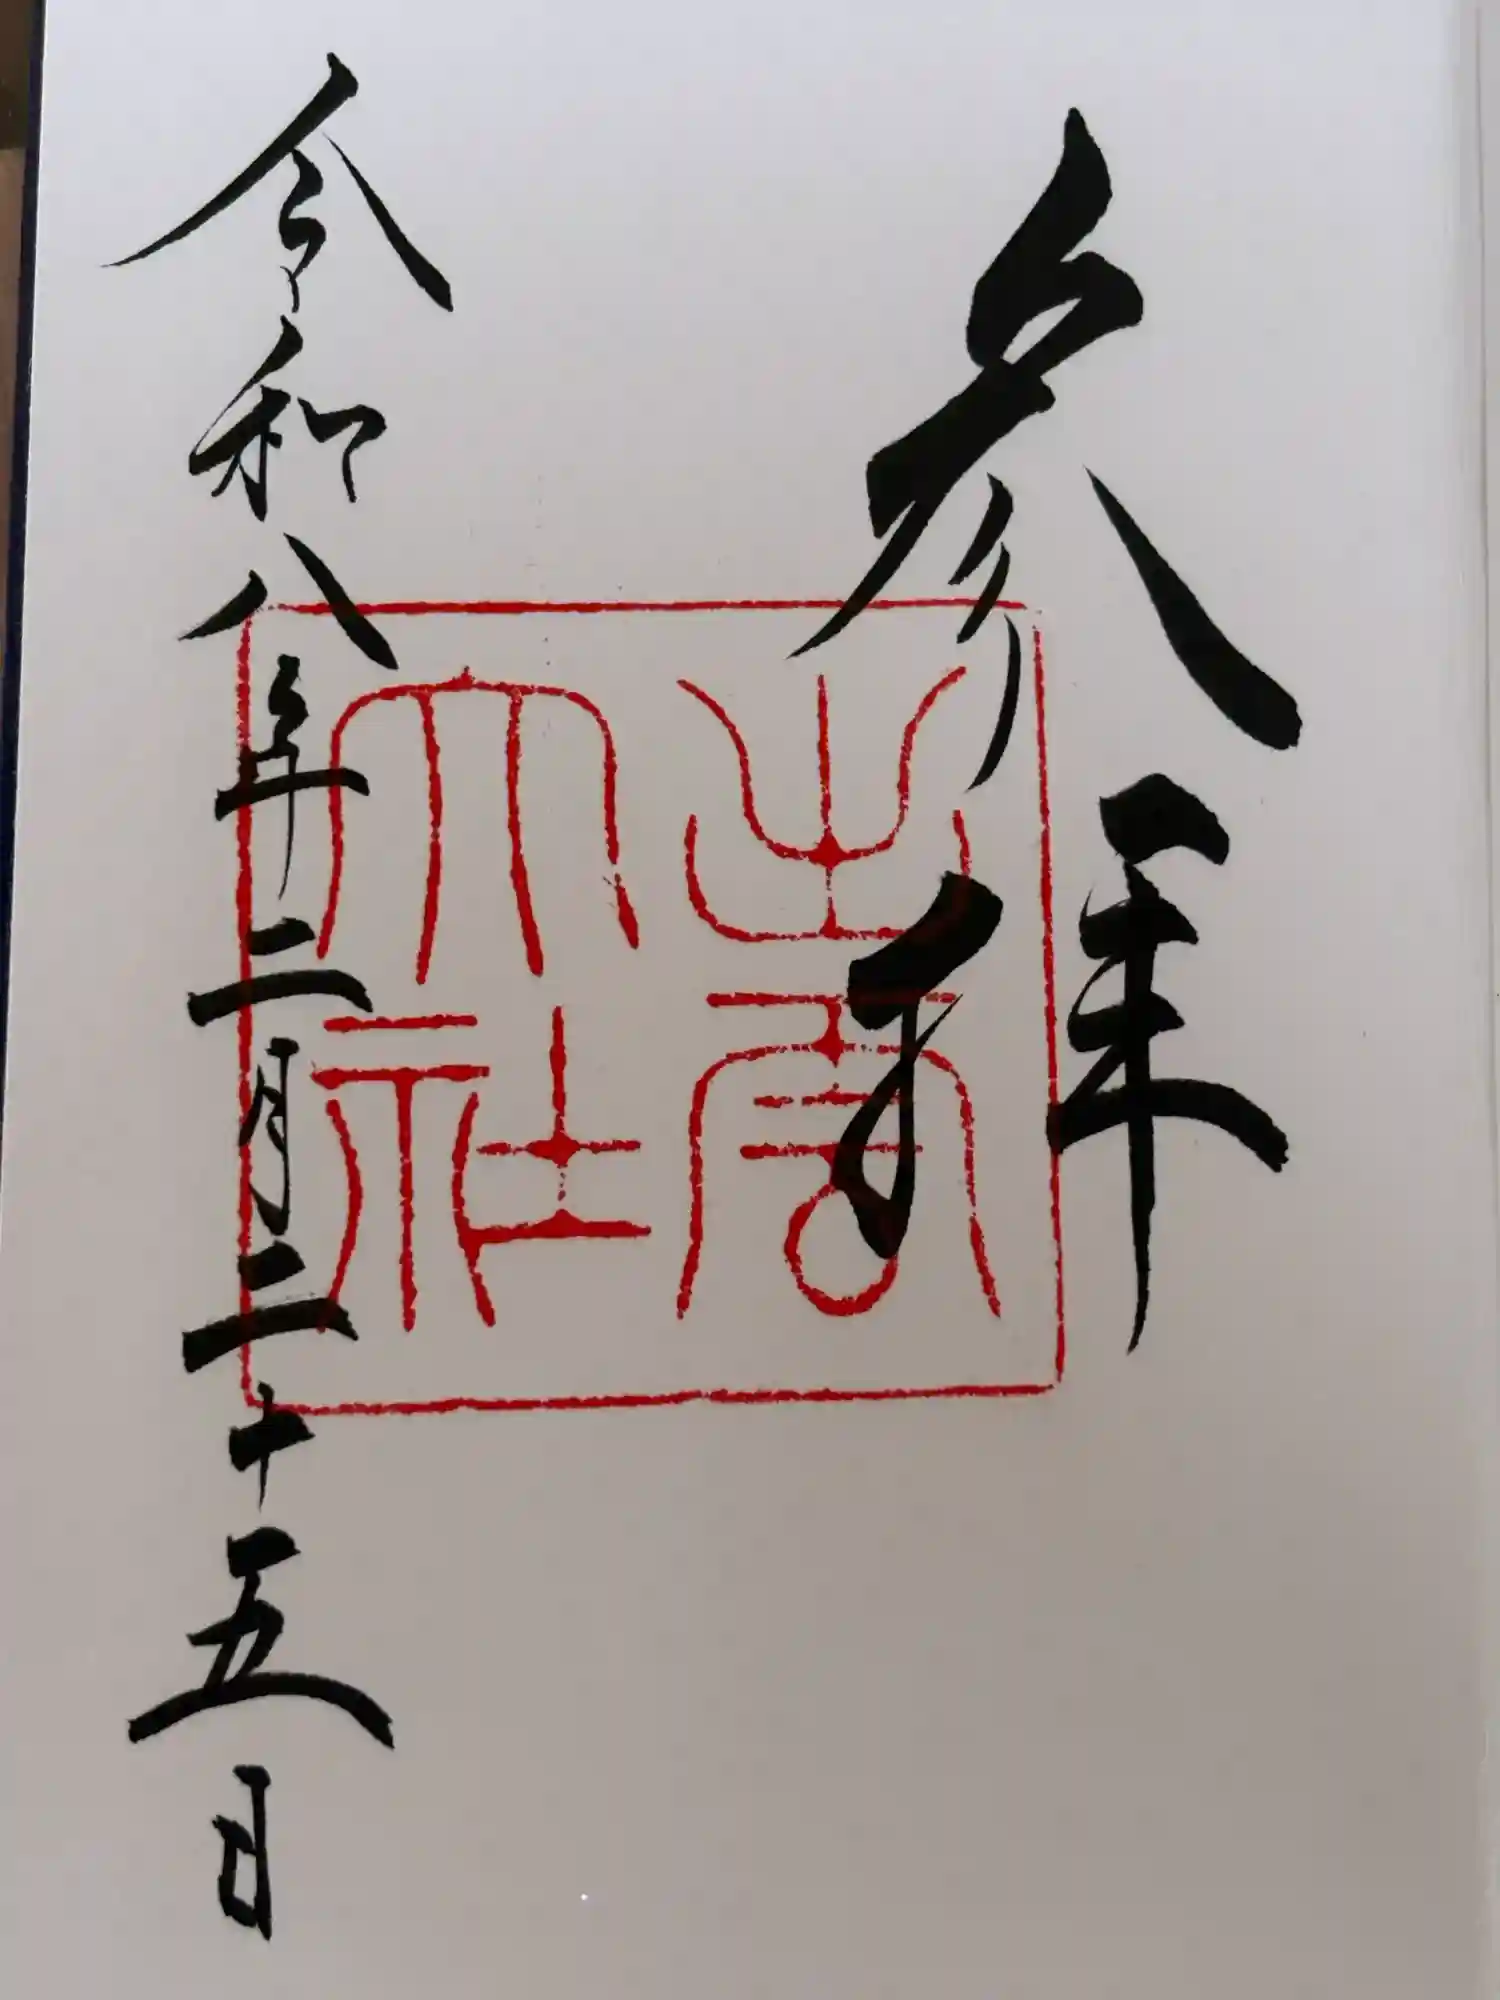 参拝
出雲
大社
令和八年二月二十五日